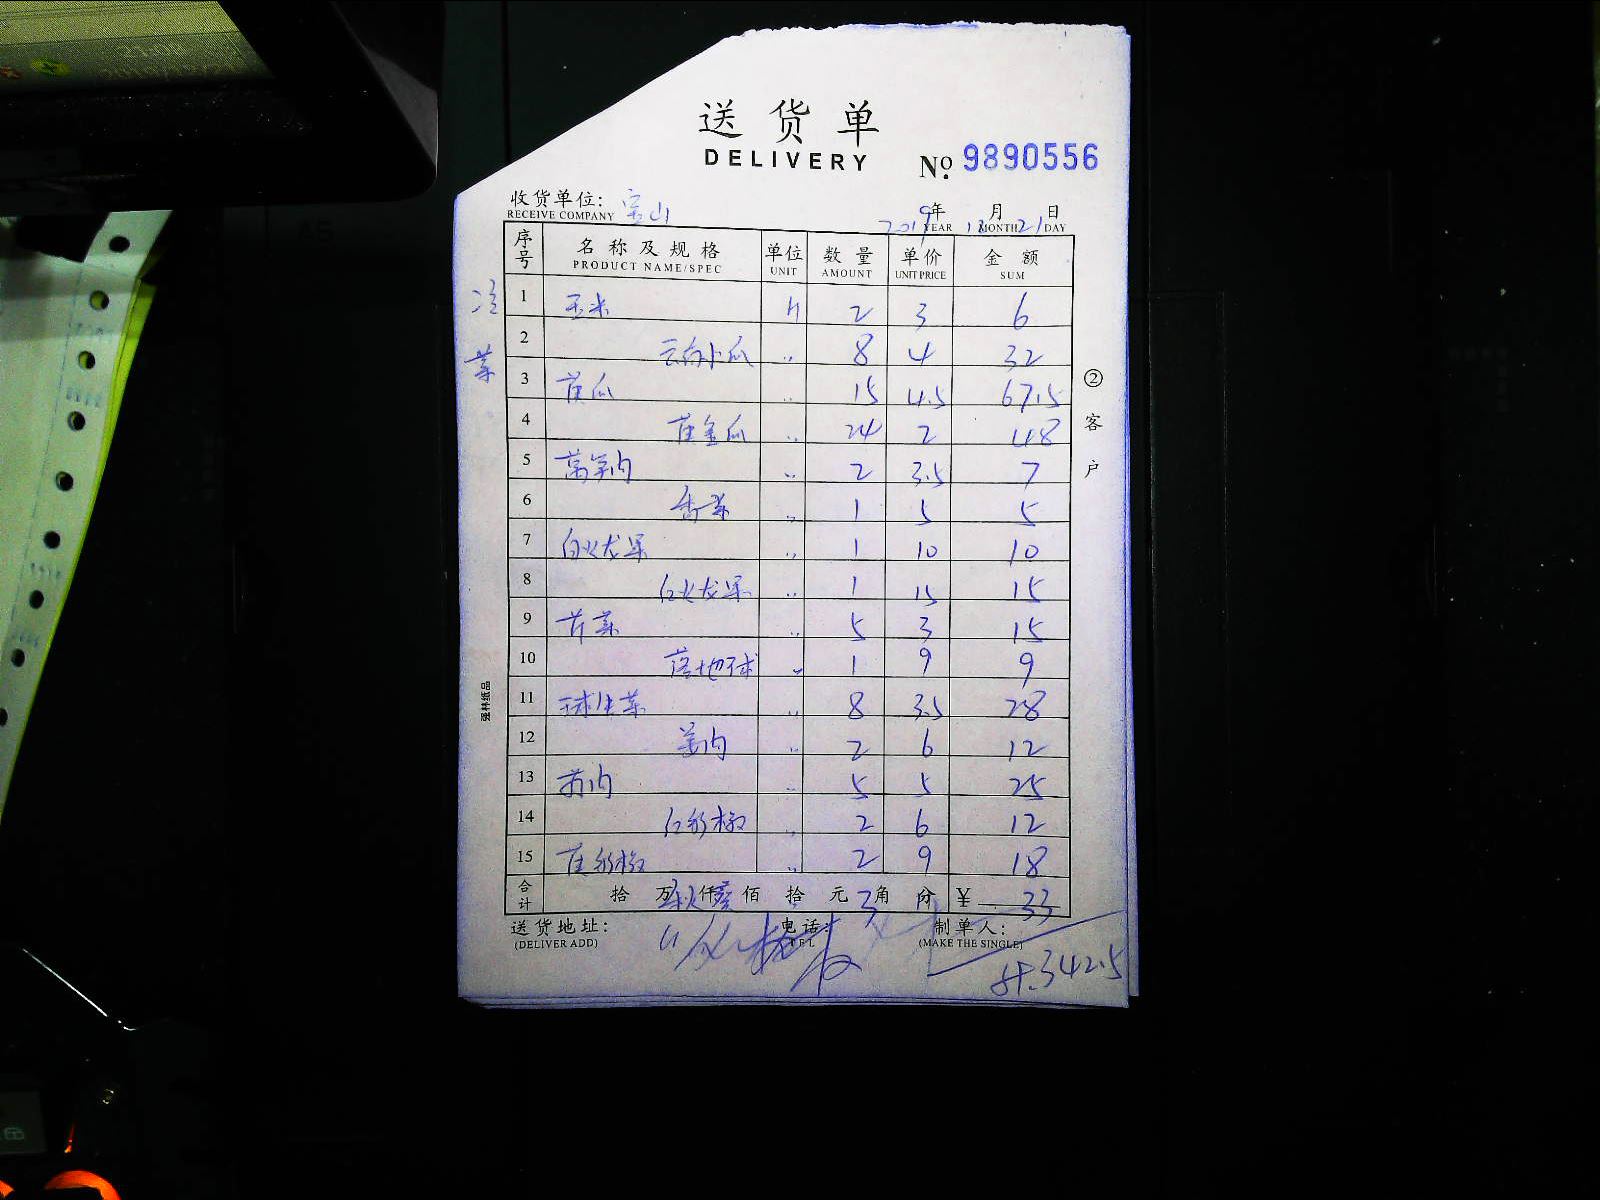 送货单
DELIVERY
No. 9890556
收货单位: 宝山
RECEIVE COMPANY
2019年 12月 21日
YEAR MONTH DAY
序号 名称及规格 单位 数量 单价 金额
PRODUCT NAME/SPEC UNIT AMOUNT UNIT PRICE SUM
1 玉米 2 3 6
2 小瓜 〃 8 4 32
3 黄瓜 〃 15 4.5 67.5
4 黄金瓜 〃 24 2 48
5 莴笋肉 〃 2 3.5 7
6 香菜 〃 1 5 5
7 白火龙果 〃 1 10 10
8 红火龙果 〃 1 15 15
9 芹菜 〃 5 3 15
10 落地球 〃 1 9 9
11 球生菜 〃 8 3.5 28
12 姜肉 〃 2 6 12
13 肉 〃 5 5 25
14 红彩椒 〃 2 6 12
15 黄彩椒 〃 2 9 18
合计 拾 万 仟 佰 拾 元 角 分 ¥ 33
送货地址: 电话: 制单人:
(DELIVER ADD) TEL (MAKE THE SINGLE)
342.5
②客户
强林纸品